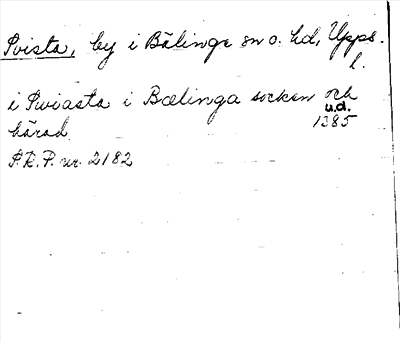 Svista, by i Bälinge sn o. hd, Upps.
l.
i Swiasta i Bælinga socken och
u.d.
härad. 1385
S.R.P. nr. 2182